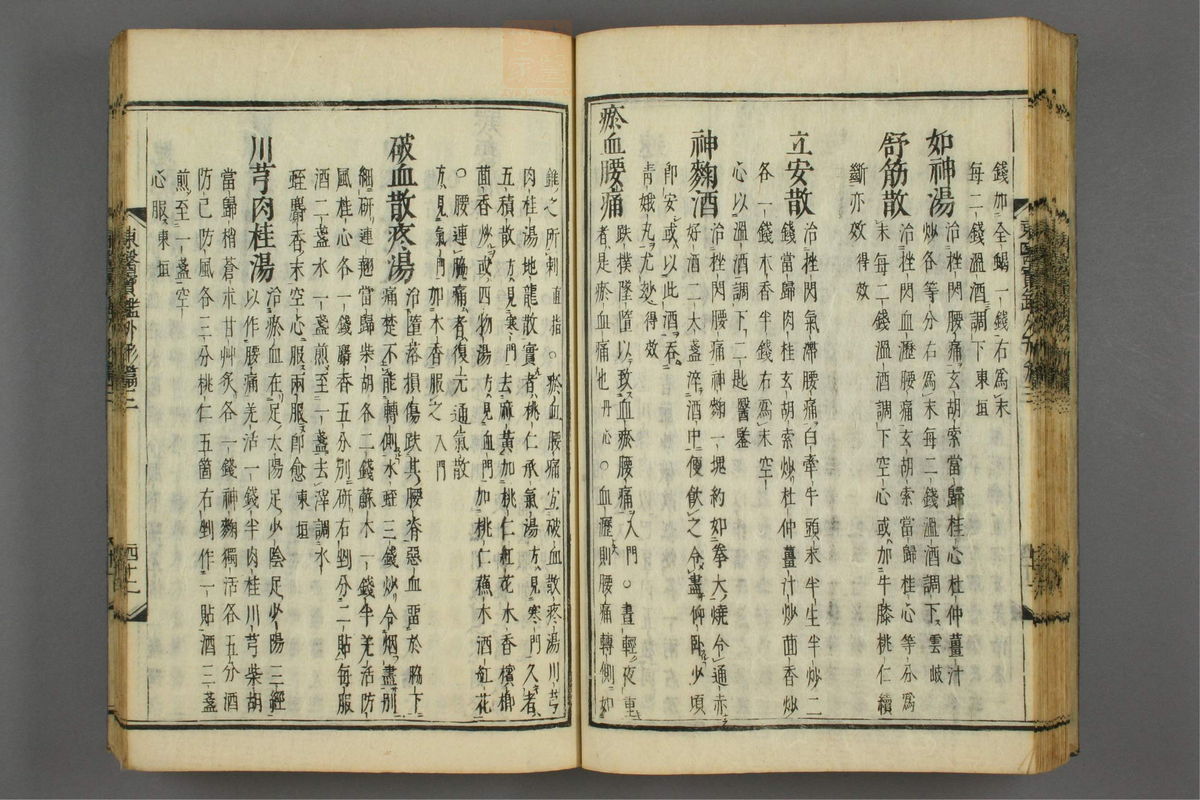 錢加全蝎一錢右爲末
每二錢溫酒調下東垣
如神湯治挫閃腰痛玄胡索當歸桂心杜仲薑汁
炒各等分右爲末每二錢溫酒調下雲岐
舒筋散治挫閃血瀝腰痛玄胡索當歸桂心等分爲
末每二錢溫酒調下空心或加牛膝桃仁續
斷亦效得效
立安散治挫閃氣滯腰痛白牽牛頭末半生半炒二
錢當歸肉桂玄胡索炒杜仲薑汁炒茴香炒
各一錢木香半錢右爲末空
心以溫酒調下二匙醫鑒
神麴酒治挫閃腰痛神麴一塊約如拳大燒令通赤
好酒二大盞淬酒中便飮之令盡仰臥少頃
卽安或以此酒吞
靑娥丸尤玅得效
瘀血腰痛跌撲墜墮以致血瘀腰痛入門○晝輕夜重
者是瘀血痛也丹心○血瀝則腰痛轉側如
錐之所刺直指○瘀血腰痛宜破血散疼湯川芎
肉桂湯地龍散實者桃仁承氣湯方見寒門久者
五積散方見寒門去麻黃加桃仁紅花木香檳榔
茴香炒或四物湯方見血門加桃仁蘓木酒紅花
○腰連脇痛者復元通氣散
方見氣門加木香服之入門
破血散疼湯治墮落損傷跌其腰脊惡血留於脇下
痛楚不能轉側水蛭三錢炒令烟盡別
細硏連翹當歸柴胡各二錢蘇木一錢半羌活防
風桂心各一錢麝香五分別硏右剉分二貼每服
酒二盞水一盞煎至一盞去滓調水
蛭麝香末空心服兩服卽愈東垣
川芎肉桂湯治瘀血在足太陽足少陰足少陽三經
以作腰痛羌活一錢半肉桂川芎柴胡
當歸梢蒼朮甘艸炙各一錢神麴獨活各五分酒
防己防風各三分桃仁五箇右剉作一貼酒三盞
煎至一盞空
心服東垣
東醫寶鑑外形篇三